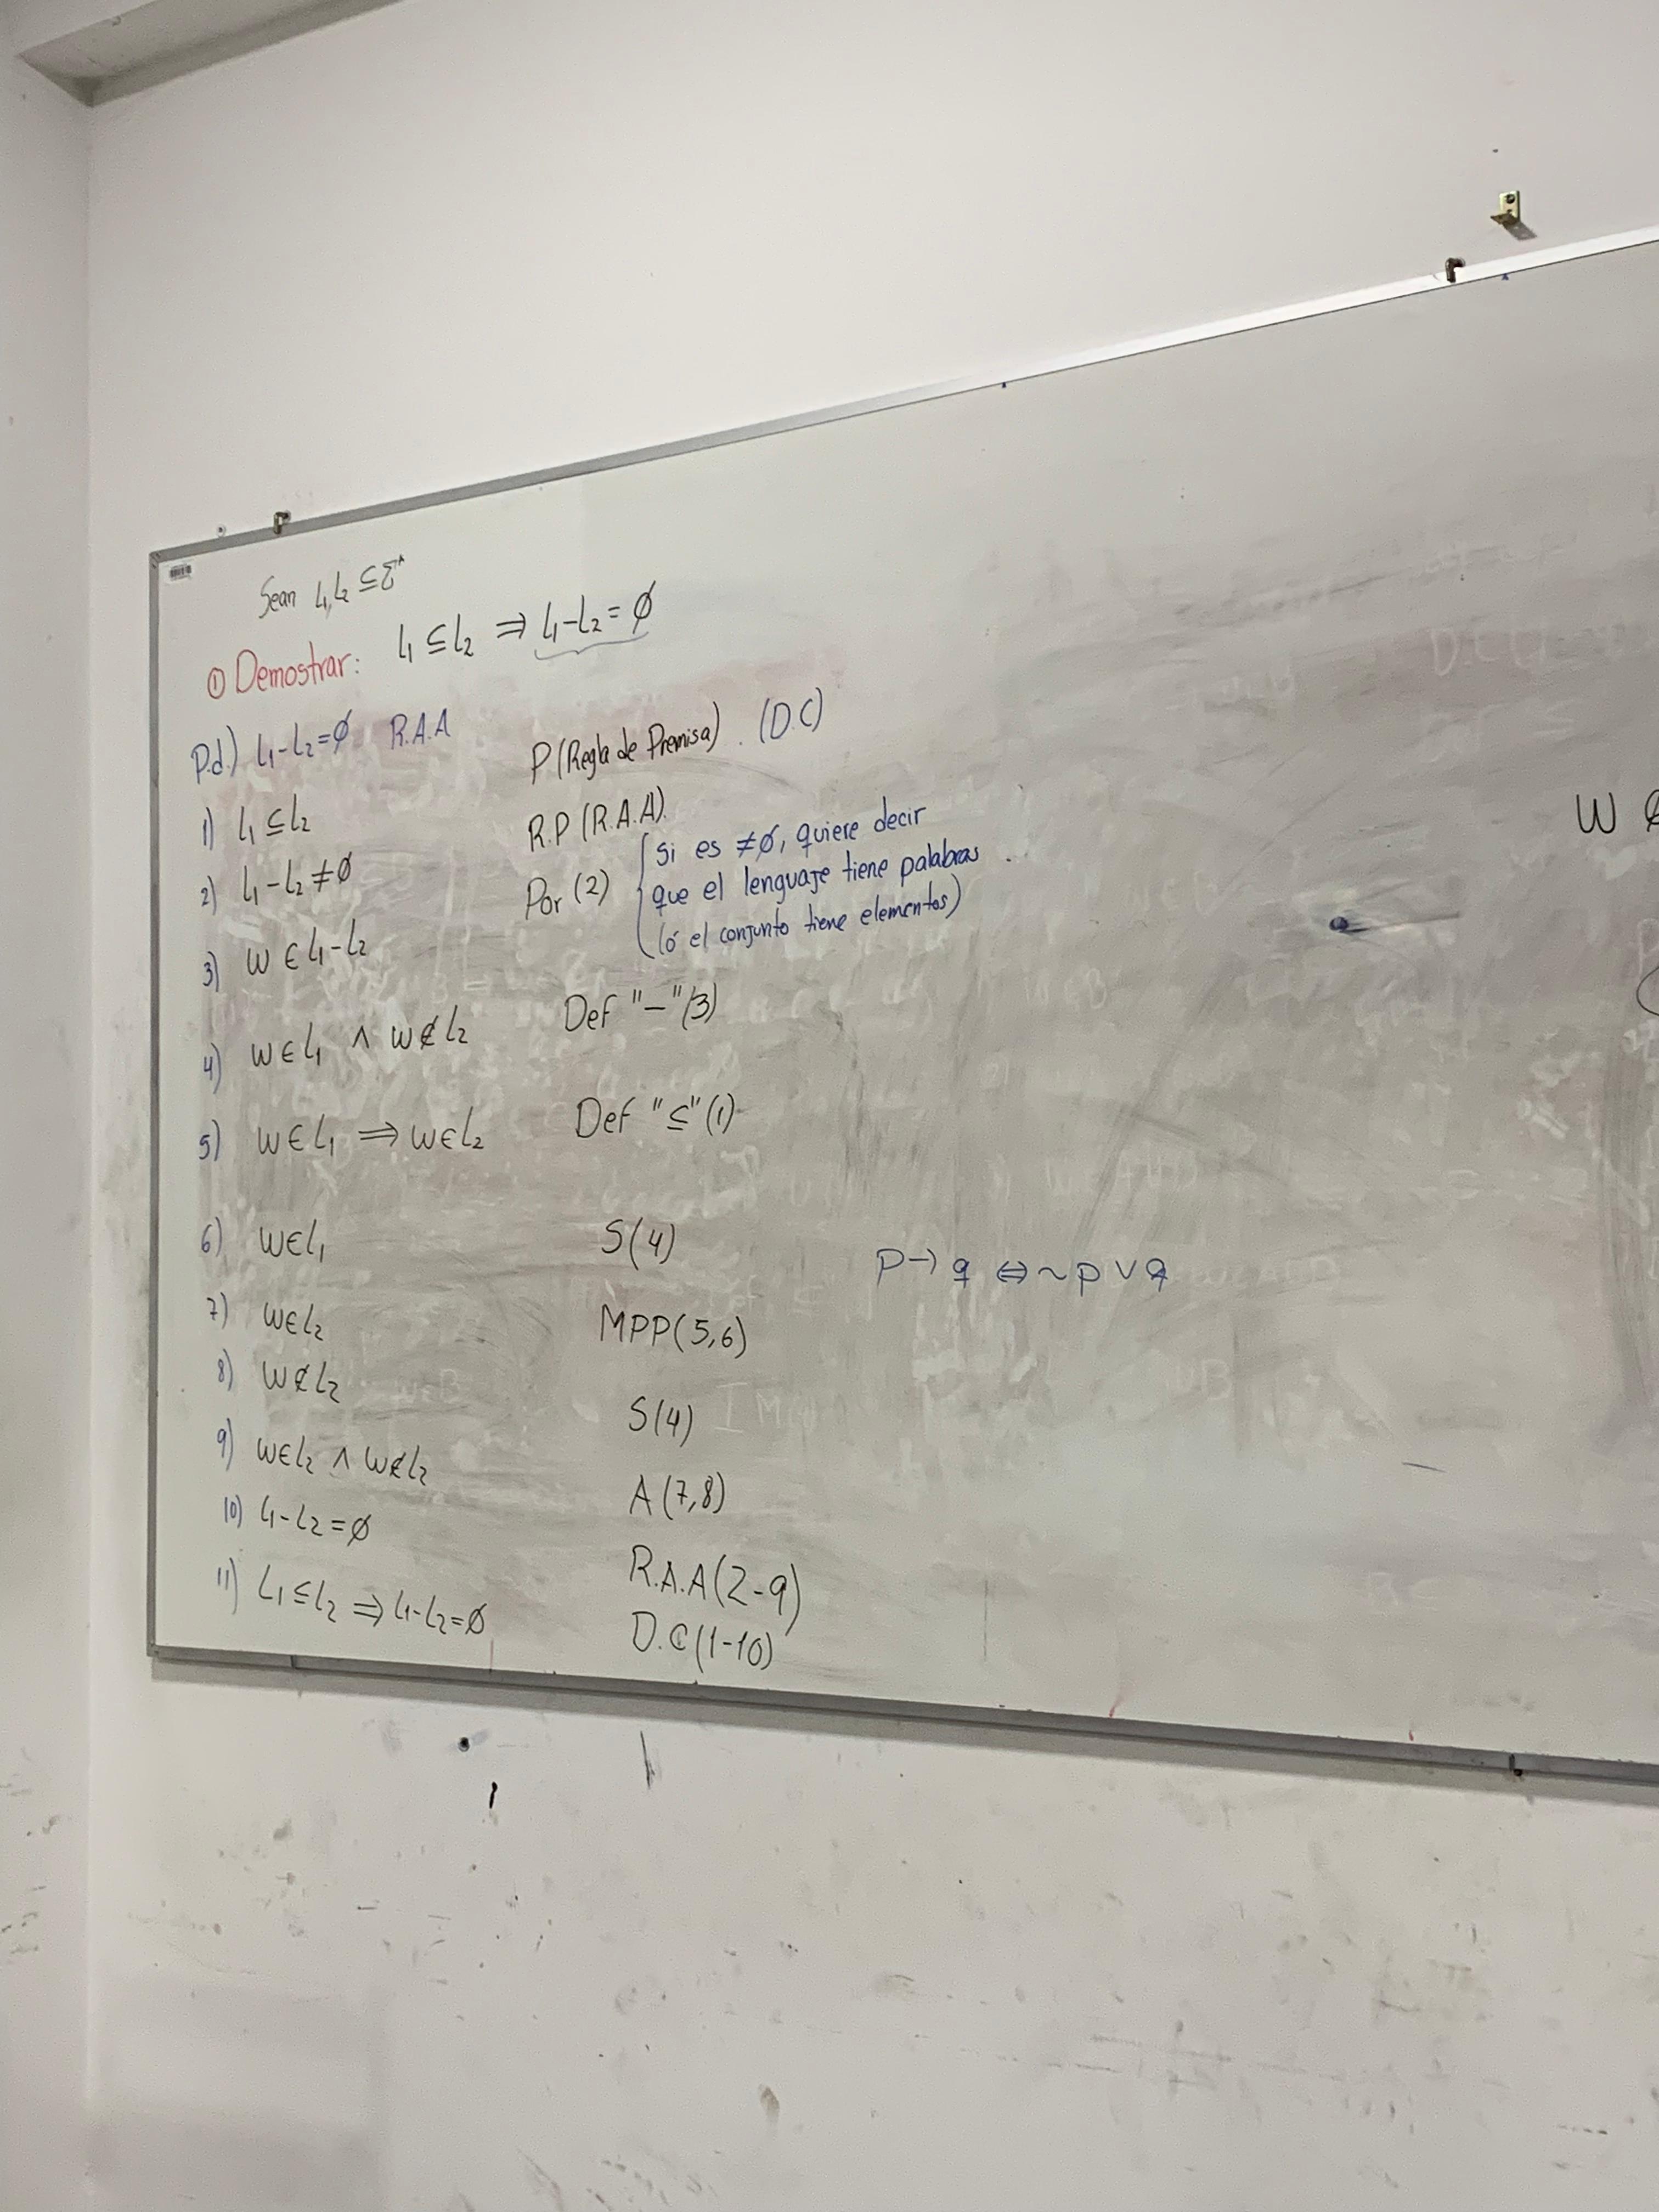 Sean L₁,L₂ ⊆ Σ*
① Demostrar: L₁ ⊆ L₂ ⇒ L₁-L₂ = ∅
P.d.) L₁-L₂=∅ R.A.A
1) L₁ ⊆ L₂ P (Regla de Premisa). (D.C)
2) L₁-L₂ ≠ ∅ R.P (R.A.A).
3) W ∈ L₁-L₂ Por (2) { Si es ≠∅, quiere decir
que el lenguaje tiene palabras.
(ó el conjunto tiene elementos)
4) W ∈ L₁ ∧ W ∉ L₂ Def "-" (3)
5) W ∈ L₁ ⇒ W ∈ L₂ Def "⊆" (1)
6) W ∈ L₁ S(4)
7) W ∈ L₂ MPP(5,6)
8) W ∉ L₂ S(4)
9) W ∈ L₂ ∧ W ∉ L₂ A(7,8)
10) L₁-L₂ = ∅ R.A.A(2-9)
11) L₁ ⊆ L₂ ⇒ L₁-L₂ = ∅ D.C(1-10)
P→q ⇔ ~p∨q
W